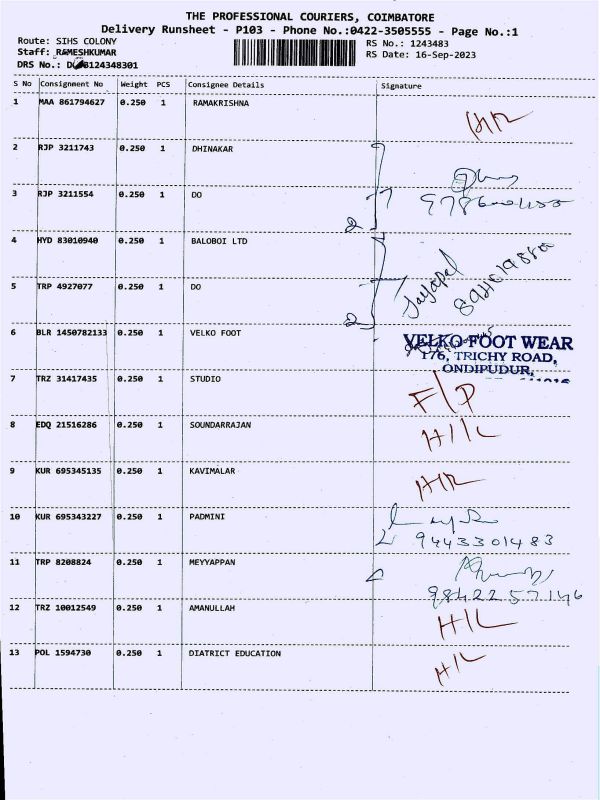 THE PROFESSIONAL COURIERS, COIMBATORE
Delivery Runsheet - P103 - Phone No.:0422-3505555 - Page No.:1
Route: SIHS COLONY
RS No.: 1243483
Staff: RAMESHKUMAR
RS Date: 16-Sep-2023
DRS No.: B124348301
S No Consignment No Weight PCS Consignee Details Signature
1 MAA 861794627 0.250 1 RAMAKRISHNA
2 RJP 3211743 0.250 1 DHINAKAR
3 RJP 3211554 0.250 1 DO
2
4 HYD 83010940 0.250 1 BALOBOI LTD
Jayapal
5 TRP 4927077 0.250 1 DO
2
6 BLR 1450782133 0.250 1 VELKO FOOT
VELKO FOOT WEAR
176, TRICHY ROAD,
ONDIPUDUR,
7 TRZ 31417435 0.250 1 STUDIO F/P
8 EDQ 21516286 0.250 1 SOUNDARRAJAN H/L
9 KUR 695345135 0.250 1 KAVIMALAR
10 KUR 695343227 0.250 1 PADMINI
9443301483
11 TRP 8208824 0.250 1 MEYYAPPAN
9842257146
12 TRZ 10012549 0.250 1 AMANULLAH H/L
13 POL 1594730 0.250 1 DIATRICT EDUCATION H/L